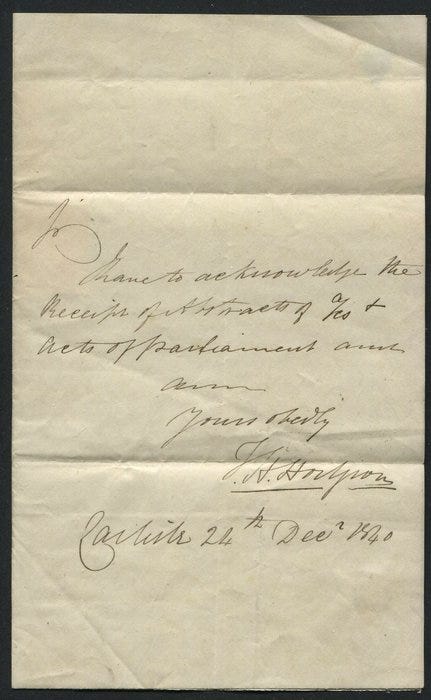 Sir
I have to acknowledge the
Receipt of Abstracts of &
Acts of Parliament and
am
Yours obedly
Hodgson
Carlisle 24th Decr 1840